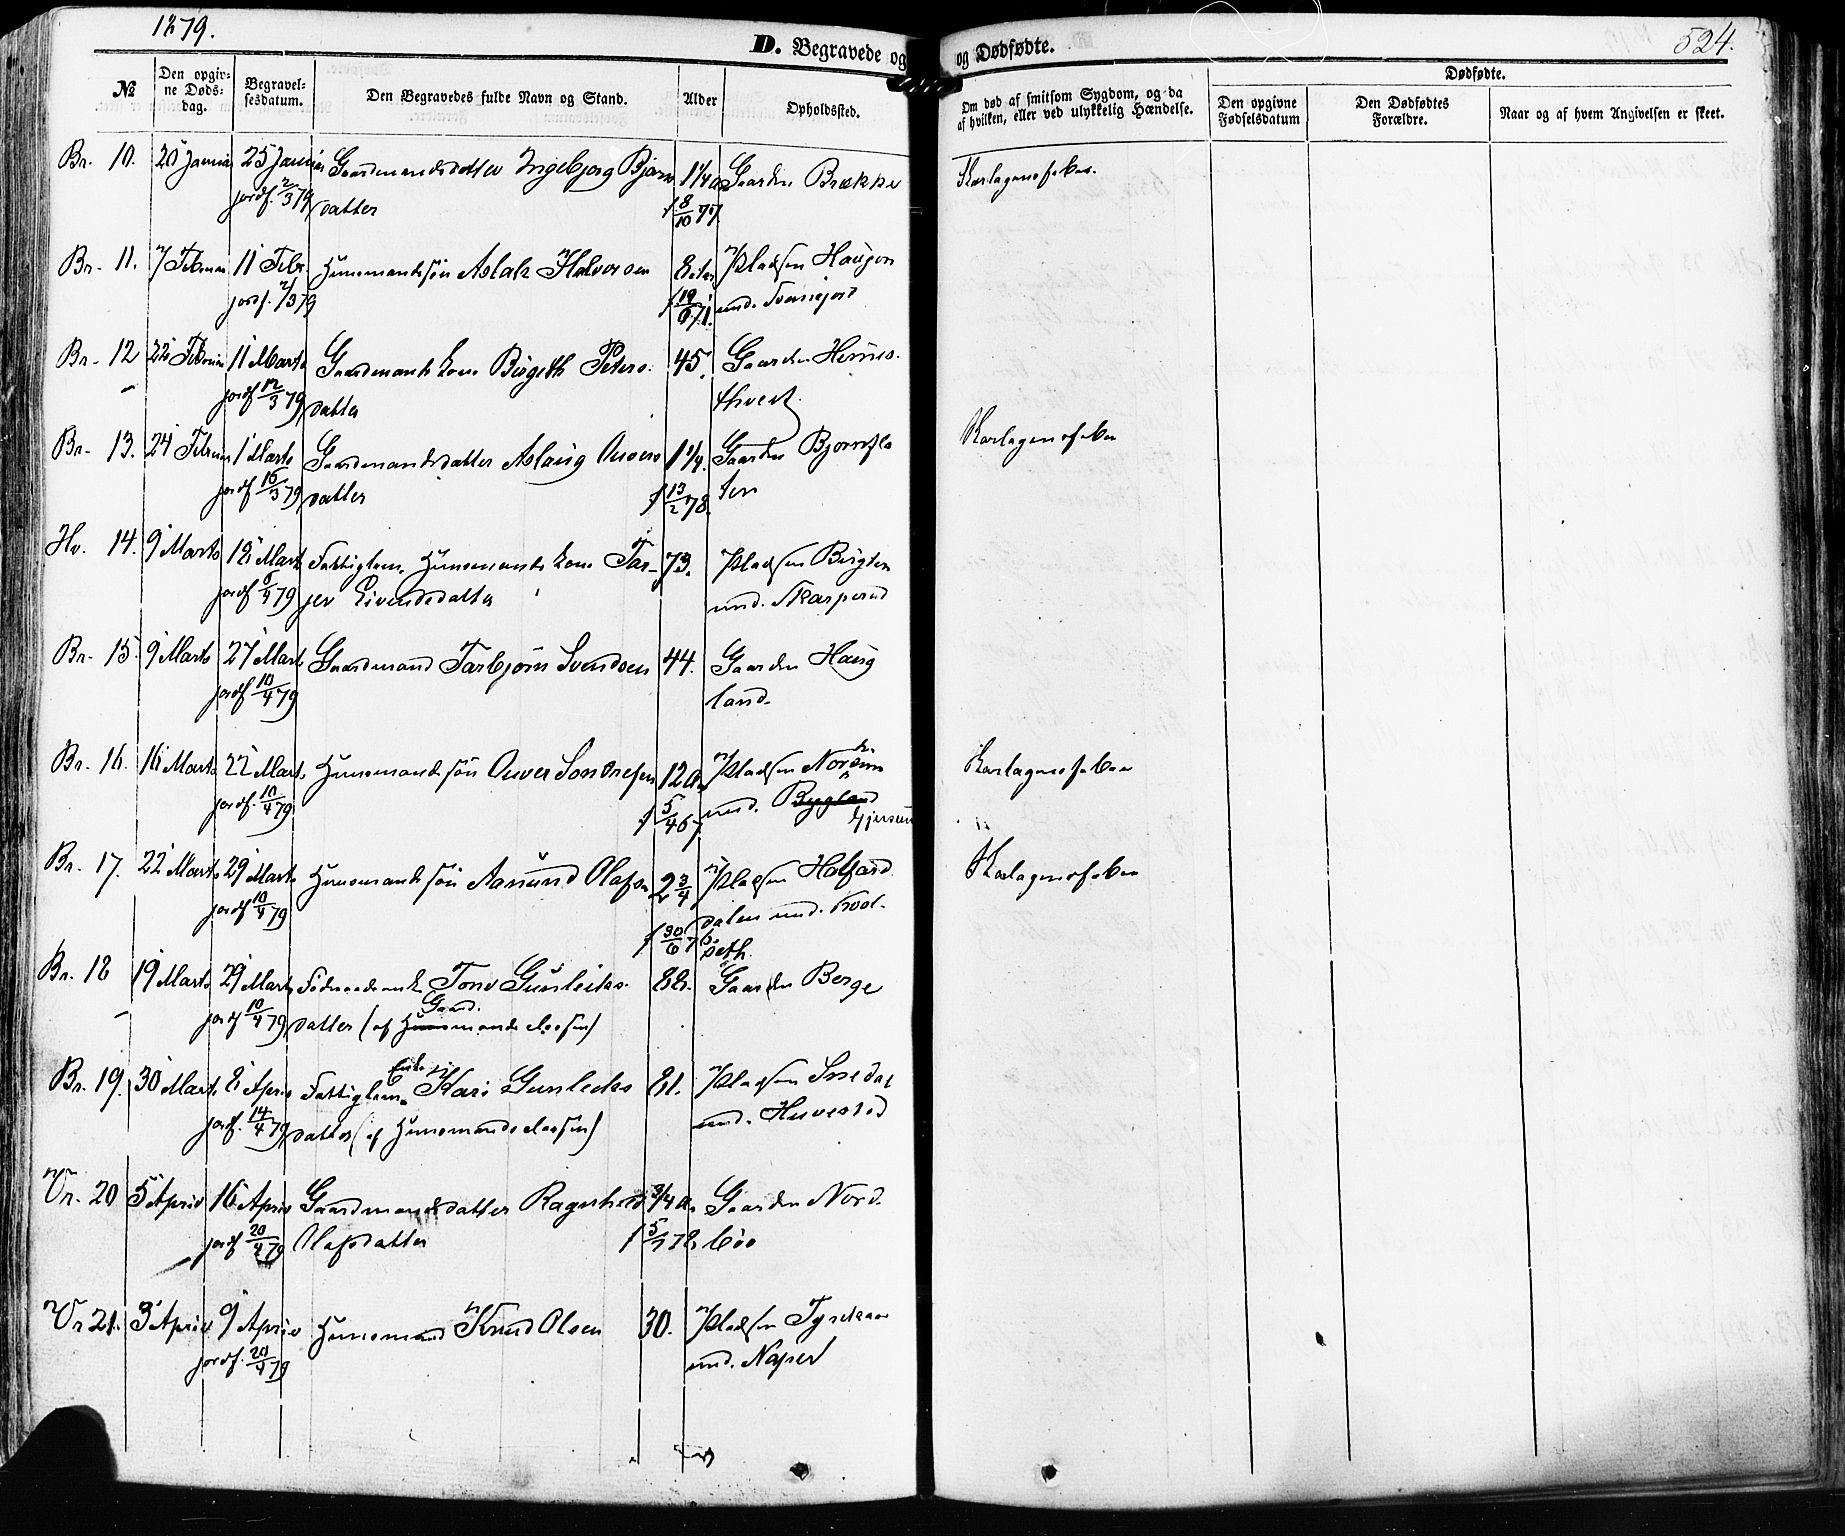 1879.
D. Begravede og og Dødfødte.
524.
№
Den opgivne Dødsdag.
Begravelsesdatum.
Den Begravedes fulde Navn og Stand.
Alder
Opholdssted.
Om død af smitsom Sygdom, og da af hvilken, eller ved ulykkelig Hændelse.
Dødfødte.
Den opgivne Fødselsdatum
Den Dødfødtes Forældre.
Naar og af hvem Angivelsen er skeet.
Br. 10. 20 Januar 25 Januar Gaardmandsdatter Ingebjørg Bjørns 1 1/4 a Gaarden Brække Skarlagensfeber.
jordf. 2/3 79 datter f 8/10 77
Br. 11. 7 Februar 11 Febr. Huusmandssön Aslak Halvorsen 8 Pladsen Haugen
jordf. 2/3 79 f 19/6 71. und.
Br. 12 22 Februar 11 Marts Gaardmands kone Birgeth Peters 45. Gaarden
jordf 12/3 79 datter
Br. 13. 24 Februar 1 Marts Gaardmandsdatter Aslaug Anvers 1 1/4. Gaarden Bjørnfla
jordf 16/3 79 datter f 13/2 78. ten Skarlagensfeber
Hv. 14. 9 Marts 12 Marts Fattiglem. Huusmands kone Tar- 73. Pladsen
jordf 79 jer Eivindsdatter und. Skarperud
Br. 15 9 Marts 27 Marts Gaardmand Tarbjørn Svendsen 44. Gaarden Haug
jordf 10/4 79 land.
Br. 16. 16 Marts 22 Marts Huusmandssön Anver Sondresen 12 a. Pladsen Skarlagensfeber
jordf. 10/4 79 f 5/4 67 und. Bygland
Br. 17. 22 Marts 29 Marts Huusmandssön Aamund Olafs 2 3/4 Pladsen Skarlagensfeber
jordf 10/4 79 f 30/6 76 dalen und.
seth.
Br. 18 19 Marts 29 Marts Tone Gunleiks 88. Gaarden Berge
Gaard.
jordf 10/4 79 datter (af Huusmandsclassen)
Enke
Br. 19. 30 Marts 8 April Fattiglem Kari Gunleiks 81. Pladsen
jordf. 14/4 79 datter (af Huusmandsclassen) und. Huvestad
Vr. 20 5 April 16 April Gaardmandsdatter Ragnhild 3/4 a. Gaarden Nord
jordf 20/4 79 Olafsdatter f 5/7 78 böe
Vr. 21. 3 April 9 April Huusmand Knud Olsen 30. Pladsen
jordf. 20/4 79 und. Naper